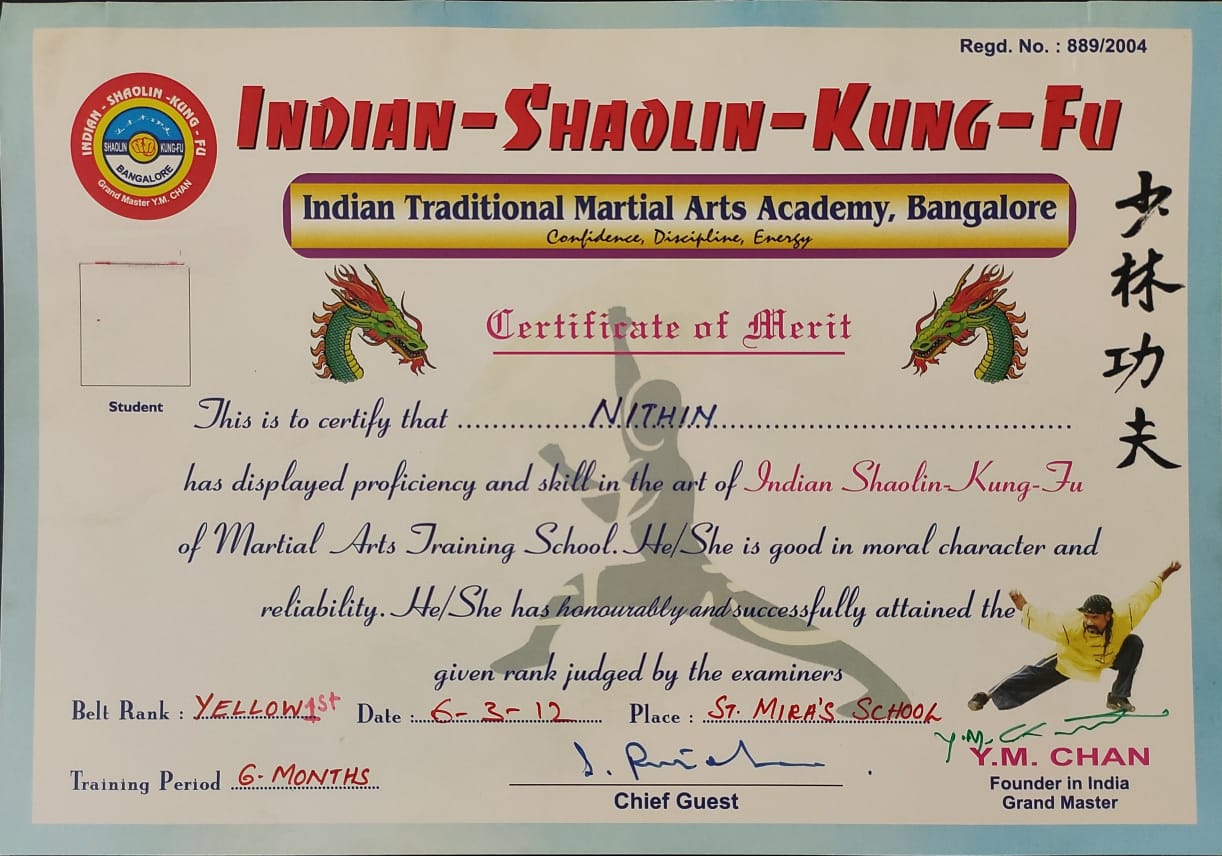 Regd. No. : 889/2004
INDIAN - SHAOLIN - KUNG - FU
SHAOLIN KUNG-FU
BANGALORE
Grand Master Y.M. CHAN
INDIAN-SHAOLIN-KUNG-FU
Indian Traditional Martial Arts Academy, Bangalore
Confidence, Discipline, Energy
少林功夫
Certificate of Merit
Student
This is to certify that NITHIN
has displayed proficiency and skill in the art of Indian Shaolin-Kung-Fu
of Martial Arts Training School. He/She is good in moral character and
reliability. He/She has honourably and successfully attained the
given rank judged by the examiners
Belt Rank : YELLOW 1st Date : 6-3-12 Place : ST. MIRA'S SCHOOL
Y.M. CHAN
Training Period 6-MONTHS
Founder in India
Chief Guest
Grand Master